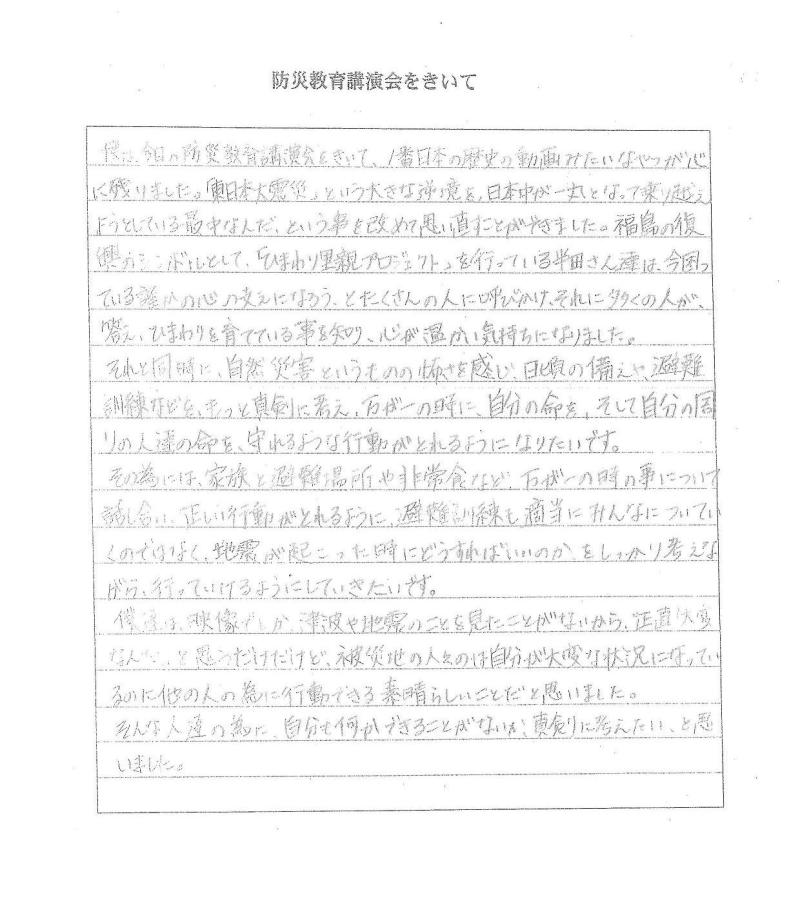 防災教育講演会をきいて
僕は、今日の防災教育講演会をきいて、1番日本の歴史の動画みたいなやつが心
に残りました。「東日本大震災」という大きな逆境を、日本中が一丸となって乗り越え
ようとしている最中なんだ、という事を改めて思い直すことができました。福島の復
興のシンボルとして、「ひまわり里親プロジェクト」を行っている半田さん達は、今困っ
ている誰かの心の支えになろう、とたくさんの人に呼びかけ、それに多くの人が、
答え、ひまわりを育てている事を知り、心が温かい気持ちになりました。
それと同時に、自然災害というものの怖さを感じ、日頃の備えや、避難
訓練などを、もっと真剣に考え、万が一の時に、自分の命を、そして自分の周
りの人達の命を、守れるような行動がとれるようになりたいです。
その為には、家族と避難場所や非常食など、万が一の時の事について
話し合い、正しい行動がとれるように、避難訓練も、適当にみんなについてい
くのではなく、地震が起こった時にどうすればいいのか、をしっかり考えな
がら、行っていけるようにしていきたいです。
僕達は、映像でしか、津波や地震のことを見たことがないから、正直大変
なんだ、と思うだけだけど、被災地の人々のは自分が大変な状況になってい
るのに他の人の為に行動できる素晴らしいことだと思いました。
そんな人達の為に、自分も何かできることがないか、真剣に考えたい、と思
いました。